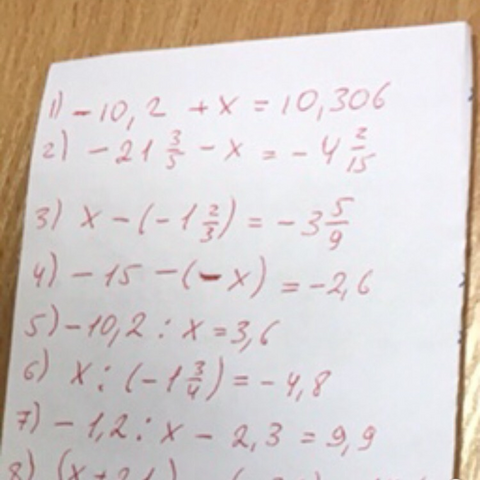 1) -10,2 + x = 10,306
2) -21 3/5 - x = -4 2/15
3) x - (-1 2/3) = -3 5/9
4) -15 - (-x) = -2,6
5) -10,2 : x = 3,6
6) x : (-1 3/4) = -4,8
7) -1,2 : x - 2,3 = 9,9
8) (x + 2,1)